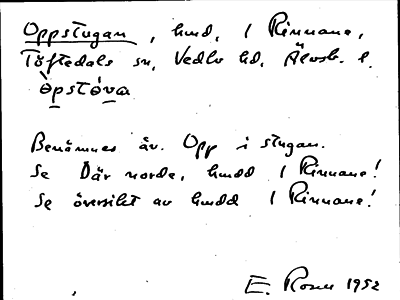 Oppstugan, hmd, i Rinnane,
Töftedals sn, Vedbo hd, Älvsb. l.
òpstóva
Benämnes äv. Opp i stugan.
Se Där norde, hmdd i Rinnane!
Se översikt av hmdd i Rinnane!
E. Rosen 1952